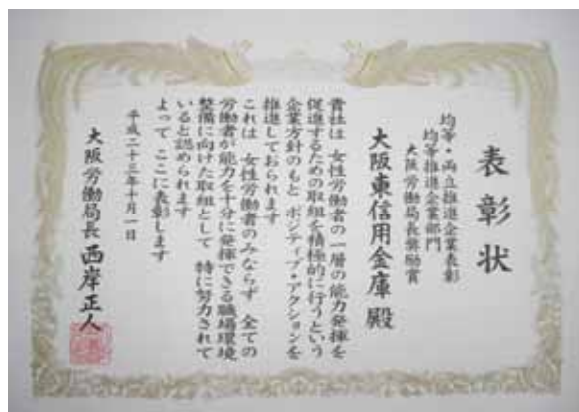 表彰状
均等・両立推進企業表彰
均等推進企業部門
大阪労働局長奨励賞
大阪東信用金庫 殿
貴社は 女性労働者の一層の能力発揮を
促進するための取組を積極的に行うという
企業方針のもと ポジティブ・アクションを
推進しておられます
これは 女性労働者のみならず 全ての
労働者が能力を十分に発揮できる職場環境
整備に向けた取組として 特に努力されて
いると認められます
よって ここに表彰します
平成二十三年十月一日
大阪労働局長 西岸正人